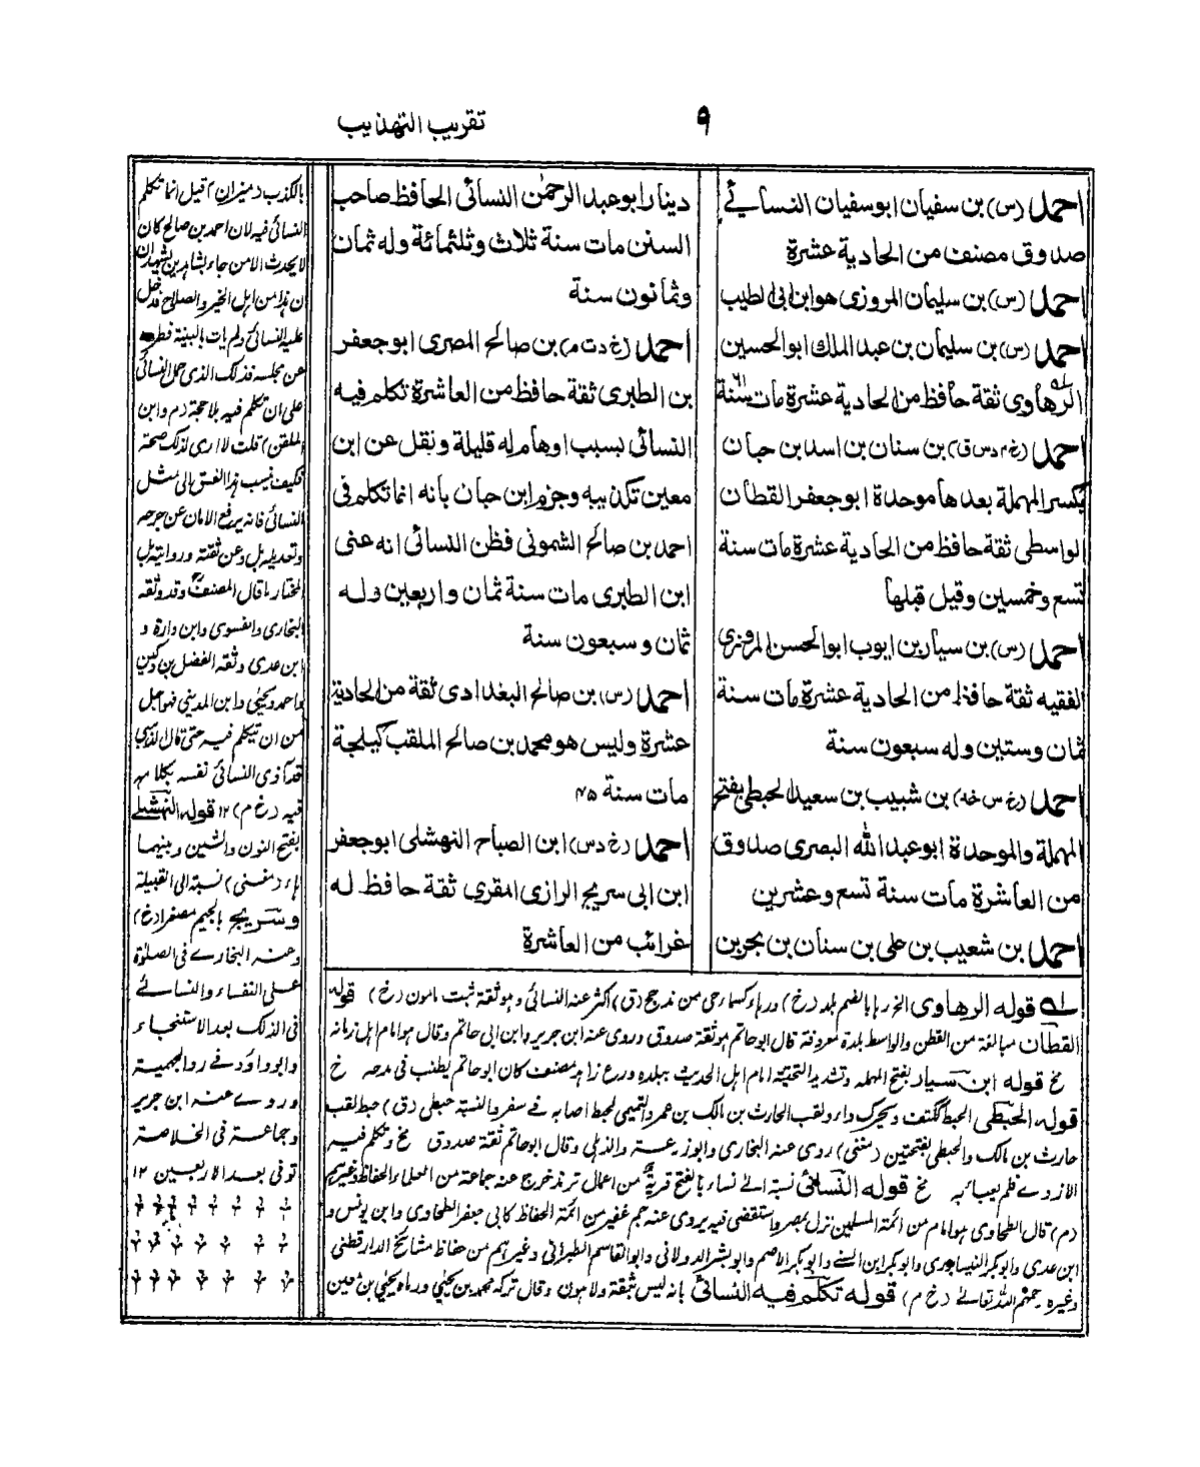 ٩
تقريب التهذيب
احمد (س) بن سفيان ابو سفيان النسائے
صدوق مصنف من الحادية عشرة
احمد (س) بن سليمان المروزى هو ابن ابى الطيب
احمد (س) بن سليمان بن عبد الملك ابو الحسين
الرهاوى ثقة حافظ من الحادية عشرة مات سنة ٦١
احمد (خ م د س ق) بن سنان بن اسد ابن حبان
بكسر المهملة بعدها موحدة ابو جعفر القطان
الواسطى ثقة حافظ من الحادية عشرة مات سنة
تسع وخمسين وقيل قبلها
احمد (س) بن سيار بن ايوب ابو الحسن المروزى
الفقيه ثقة حافظ من الحادية عشرة مات سنة
ثمان وستين وله سبعون سنة
احمد (خ س خد) بن شبيب بن سعيد الحبطى بفتح
المهملة والموحدة ابو عبد الله البصرى صدوق
من العاشرة مات سنة تسع وعشرين
احمد بن شعيب بن على بن سنان بن بحر بن
دينار ابو عبد الرحمٰن النسائى الحافظ صاحب
السنن مات سنة ثلاث وثلثمائة وله ثمان
وثمانون سنة
احمد (خ د ت م) بن صالح المصرى ابو جعفر
بن الطبرى ثقة حافظ من العاشرة تكلم فيه
النسائى بسبب اوهام له قليلة ونقل عن ابن
معين تكذيبه وجزم ابن حبان بانه انما تكلم فى
احمد بن صالح الشمونى فظن النسائى انه عنى
ابن الطبرى مات سنة ثمان واربعين وله
ثمان وسبعون سنة
احمد (س) بن صالح البغدادى ثقة من الحادية
عشرة وليس هو محمد بن صالح الملقب كيلجة
مات سنة ٢٥
احمد (خ د س) ابن الصباح النهشلى ابو جعفر
ابن ابى سريج الرازى المقرى ثقة حافظ له
غرائب من العاشرة
قوله الرهاوى الخ رها بالضم بلد (خ) ورهاء كسماء حى من مذحج (ق) اكثر عنه النسائى وهو ثقة ثبت مامون (خ) قوله
القطان مبالغة من القطن والواسط بلدة معروفة قال ابو حاتم هو ثقة صدوق وروى عنه ابن جرير وابن ابى حاتم وقال هو امام اهل زمانه
خ قوله ابن سيار بفتح المهملة وتشديد التحتية امام اهل الحديث ببلده ورع زاهد مصنف كان ابو حاتم يطنب فى مدحه خ
قوله الحبطى الحبط ككتف ويحرك داء ولقب الحارث بن مالك بن عمر والتميمى لحبط اصابه فے سفر والنسبة حبطى (ق) حبط لقب
حارث بن مالك والحبطى بفتحتين (مغنى) روى عنه البخارى وابو زرعة والذهلى وقال ابو حاتم ثقة صدوق خ وتكلم فيه
الازدے فلم يعبا به خ قوله النسائى نسبة الے نساء بالفتح قرية من اعمال ترمذ خرج عنه جماعة من العلماء الحفاظ وغيرهم
(م) قال الطحاوى هو امام من ائمة المسلمين نزل بمصر واستقضى فيه يروى عنه جم غفير من ائمة الحفاظ كابى جعفر الطحاوى وابن يونس و
ابن عدى وابو بكر النيسابورى وابو بكر ابن السنے وابو بكر الاصم وابو بشر الدولابى وابو القاسم الطبرانى وغيرهم من حفاظ مشائخ الدارقطنى
وغيره رحمهم الله تعالے (خ م) قوله تكلم فيه النسائى بانه ليس بثقة ولا مامون وقال تركه محمد بن يحيى ورماه يحيى بن معين
بالكذب (ميزان) قيل انما تكلم
النسائى فيه لان احمد بن صالح كان
لا يحدث الا من جاء بشاهدين يشهدان
ان هذا من اهل الخير والصلاح فدخل
عليه النسائى ولم يات بالبينة فطرده
عن مجلسه فذلك الذى حمل النسائى
على ان تكلم فيه بلا حجة (م) وابن
الملقن) قلت لا ارى لذلك صحة
فكيف ينسب هذا الفسق الى مثل
النسائى فانه يرفع الامان عن جرحه
وتعديله بل وعن ثقته وروايته بل
المختار ما قال المصنف وقد وثقه
البخارى والفسوى وابن وارة و
ابن عدى وثقه الفضل بن دكين
واحمد ويحيى وابن المدينى فهو اجل
من ان يتكلم فيه حتى قال الذهبى
قد آذى النسائى نفسه بكلامه
فيه (خ م) ١٢ قوله النهشلى
بفتح النون والشين وبينهما
هاء (مغنى) نسبة الى القبيلة
وسريج بالجيم مصغرا (خ)
وعنه البخارے فى الصلوٰة
على النفساء والنسائے
فى الذلك بعد الاستنجاء
وابو داؤد فے رد الجهمية
وروے عنه ابن جرير
وجماعة فى الخلاصة
توفى بعد الاربعين ١٢